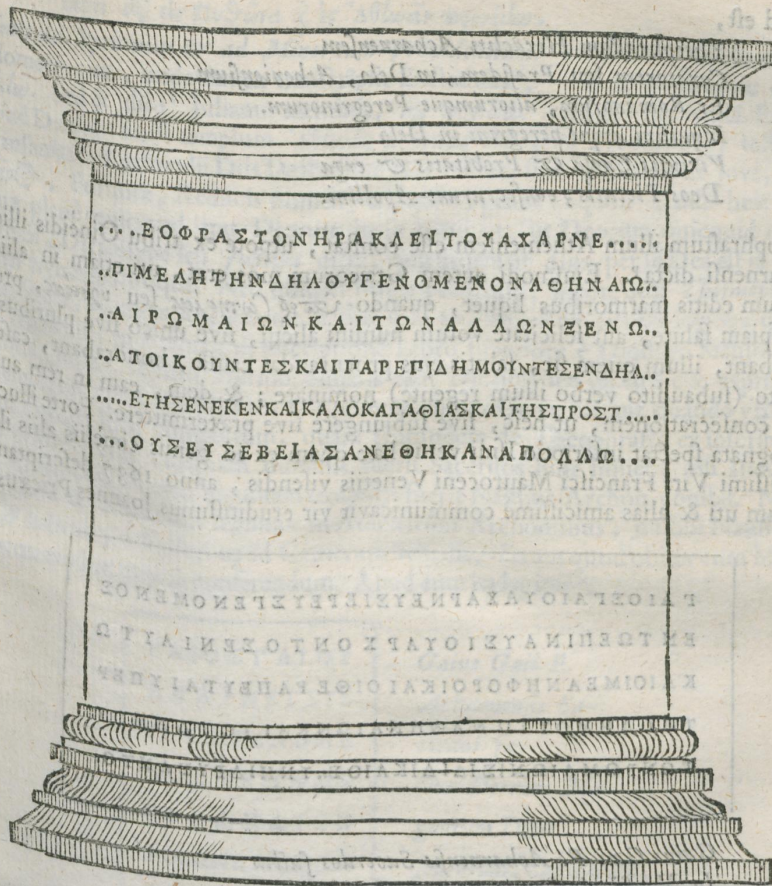 ....ΕΟΦΡΑΣΤΟΝΗΡΑΚΛΕΙΤΟΥΑΧΑΡΝΕ.....
..ΠΙΜΕΛΗΤΗΝΔΗΛΟΥΓΕΝΟΜΕΝΟΝΑΘΗΝΑΙΩ..
..ΑΙΡΩΜΑΙΩΝΚΑΙΤΩΝΑΛΛΩΝΞΕΝΩ..
..ΑΤΟΙΚΟΥΝΤΕΣΚΑΙΠΑΡΕΠΙΔΗΜΟΥΝΤΕΣΕΝΔΗΛ..
.....ΕΤΗΣΕΝΕΚΕΝΚΑΙΚΑΛΟΚΑΓΑΘΙΑΣΚΑΙΤΗΣΠΡΟΣΤ.....
...ΟΥΣΕΥΣΕΒΕΙΑΣΑΝΕΘΗΚΑΝΑΠΟΛΛΩ....